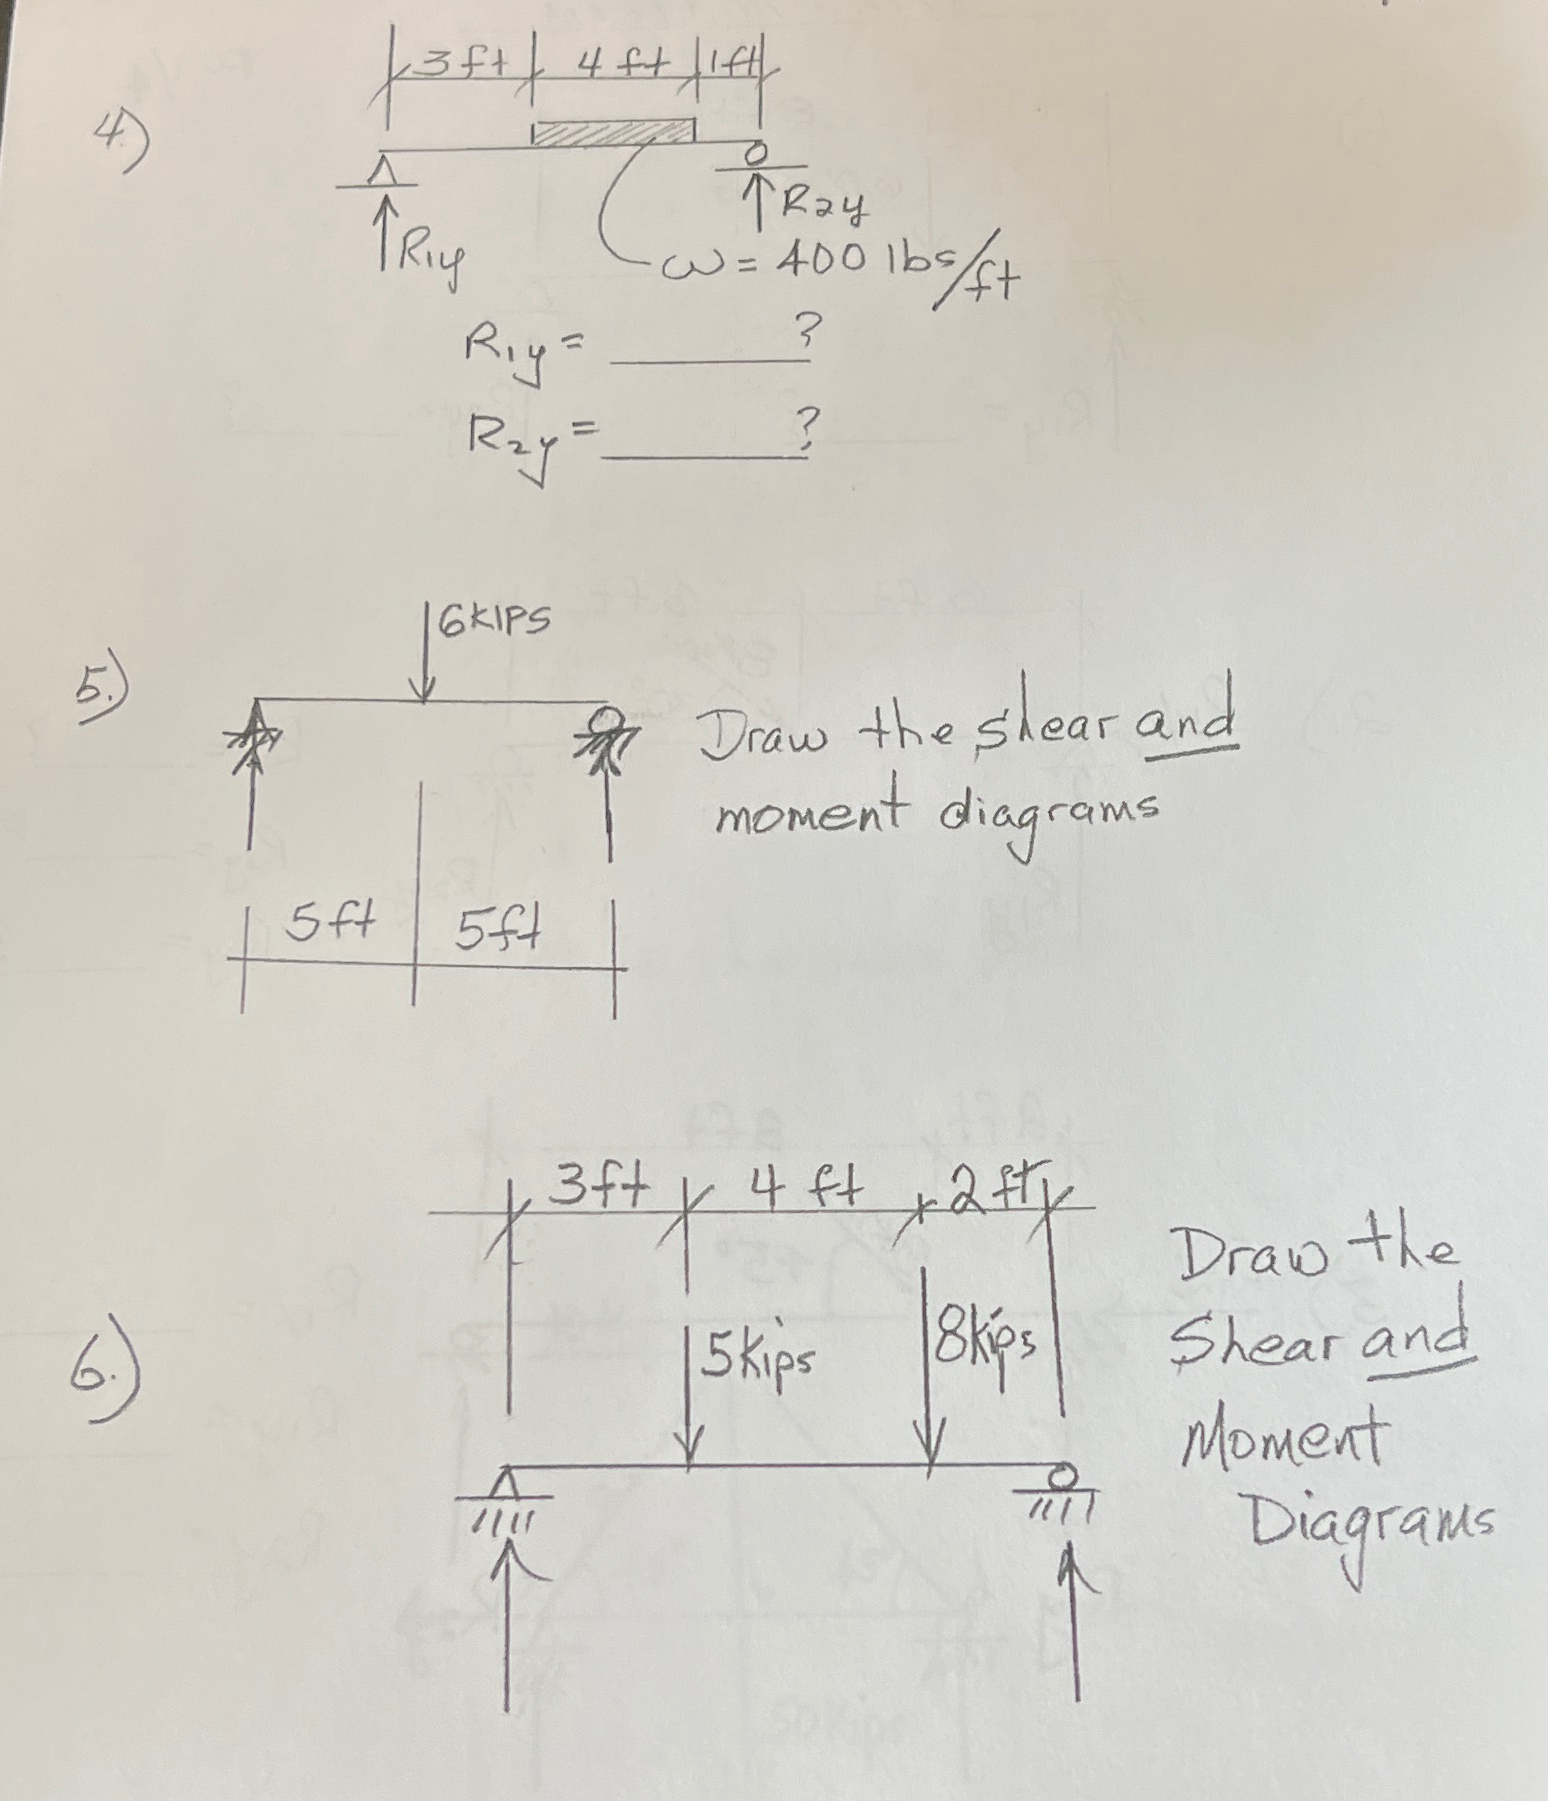 3 ft 4 ft 1 ft
4.)
R1y
R2y
ω = 400 lbs/ft
R1y = ______?
R2y = ______?
6KIPS
5.)
Draw the shear and
moment diagrams
5ft 5ft
3ft 4 ft 2 ft
6.)
5kips
8kips
Draw the
Shear and
Moment
Diagrams